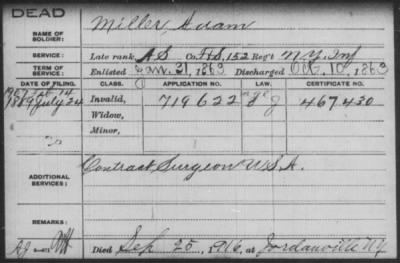 DEAD
NAME OF SOLDIER:
Miller, Adam
SERVICE:
Late rank A S Co. F. S, 152 Reg't N.Y. Inf
TERM OF SERVICE:
Enlisted Jan. 31, 1863 Discharged Oct. 10, 1863
DATE OF FILING. CLASS. APPLICATION NO. LAW. CERTIFICATE NO.
1907 Feb. 14
1889 July 24 Invalid, 719622 467.430
Widow,
Minor,
ADDITIONAL SERVICES:
Contract Surgeon U.S.A.
REMARKS:
Died Sep. 25, 1916, at Jordanville N.Y.